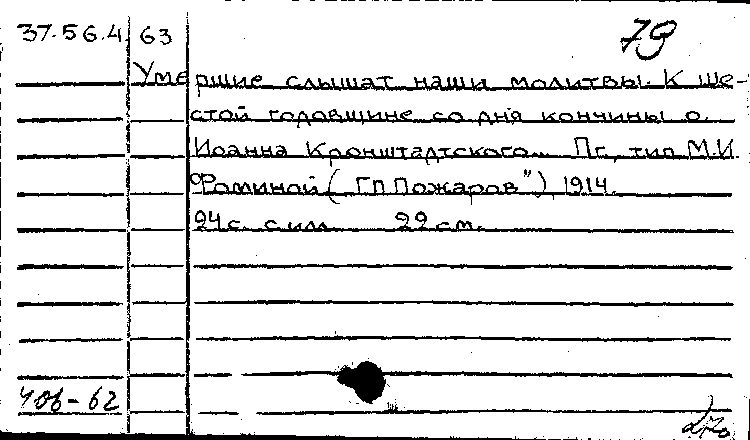 37.56.4. 63
79
Умершие слышат наши молитвы. К ше-
стой годовщине со дня кончины о.
Иоанна Кронштадтского... Пг., тип М.И.
Фоминой ("Г.П. Пожаров"), 1914.
24 с. с илл. 22 см.
406-62